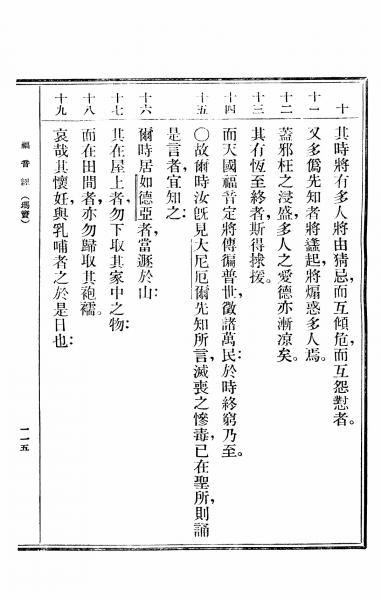 十 其時將有多人將由猜忌,而互傾危,而互怨懟者。
十一 又多僞先知者將蠭起,將煽惑多人焉。
十二 蓋邪枉之浸盛,多人之愛德亦漸凉矣。
十三 其有恆至終者,斯得捄援。
十四 而天國福音定將傳徧普世,徵諸萬民:於時終窮乃至。
十五 〇故爾時汝旣見大尼厄爾先知所言,滅喪之慘毒,已在聖所,則誦
是言者,宜知之:
十六 爾時居如德亞者,當遯於山:
十七 其在屋上者,勿下取其家中之物:
十八 而在田間者,亦勿歸取其袍襦。
十九 哀哉其懷妊,與乳哺者之於是日也:
福音經(瑪竇)
一一五